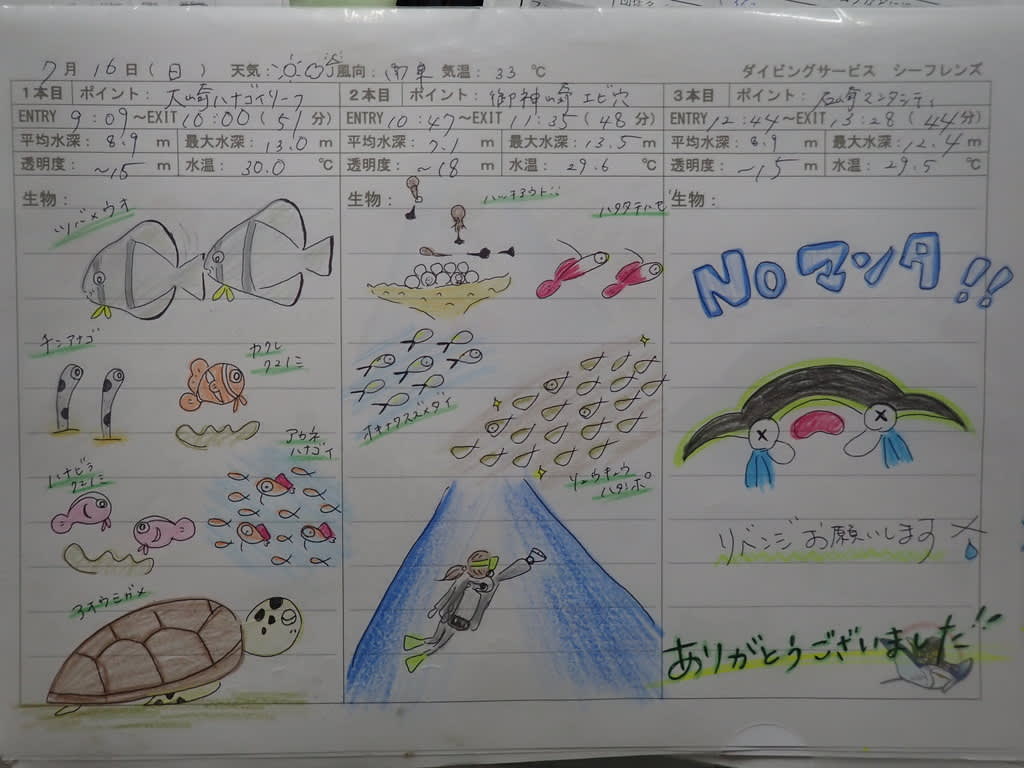 7月16日(日) 天気: 風向: 南 気温: 33℃
ダイビングサービス シーフレンズ
1本目 ポイント: 大崎ハナゴイリーフ
ENTRY 9:09〜EXIT 10:00(51分)
平均水深: 8.9 m 最大水深: 13.0 m
透明度: 〜15 m 水温: 30.0 ℃
生物:
ツバメウオ
チンアナゴ
カクレクマノミ
アカネハナゴイ
ハナビラクマノミ
アオウミガメ
2本目 ポイント: 御神崎 エビ穴
ENTRY 10:47〜EXIT 11:35(48分)
平均水深: 7.1 m 最大水深: 13.5 m
透明度: 〜18 m 水温: 29.6 ℃
生物:
ハタタテハゼ
オキナワスズメダイ
リュウキュウハタンポ
3本目 ポイント: 石崎マンタシティ
ENTRY 12:44〜EXIT 13:28(44分)
平均水深: 8.9 m 最大水深: 12.4 m
透明度: 〜15 m 水温: 29.5 ℃
生物:
Noマンタ!!
リベンジお願いします
ありがとうございました!!